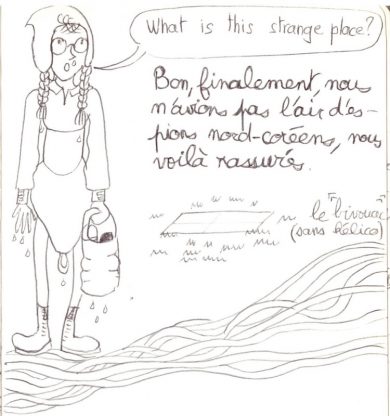 What is this strange place?
Bon, finalement, nous
n'avions pas l'air d'es-
pions nord-coréens, nous
voilà rassurés.
le "bivouac"
(sans hélico)